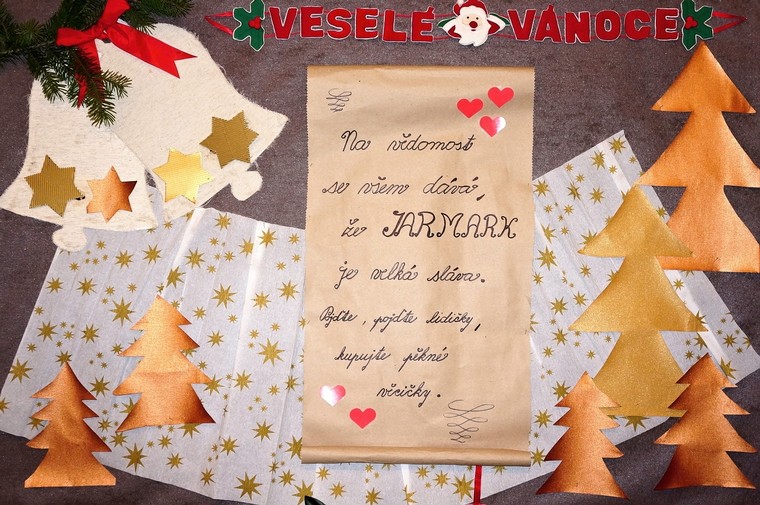 VESELÉ VÁNOCE
Na vědomost
se všem dává,
že JARMARK
je velká sláva.
Pojďte, pojďte lidičky,
kupujte pěkné
věcičky.